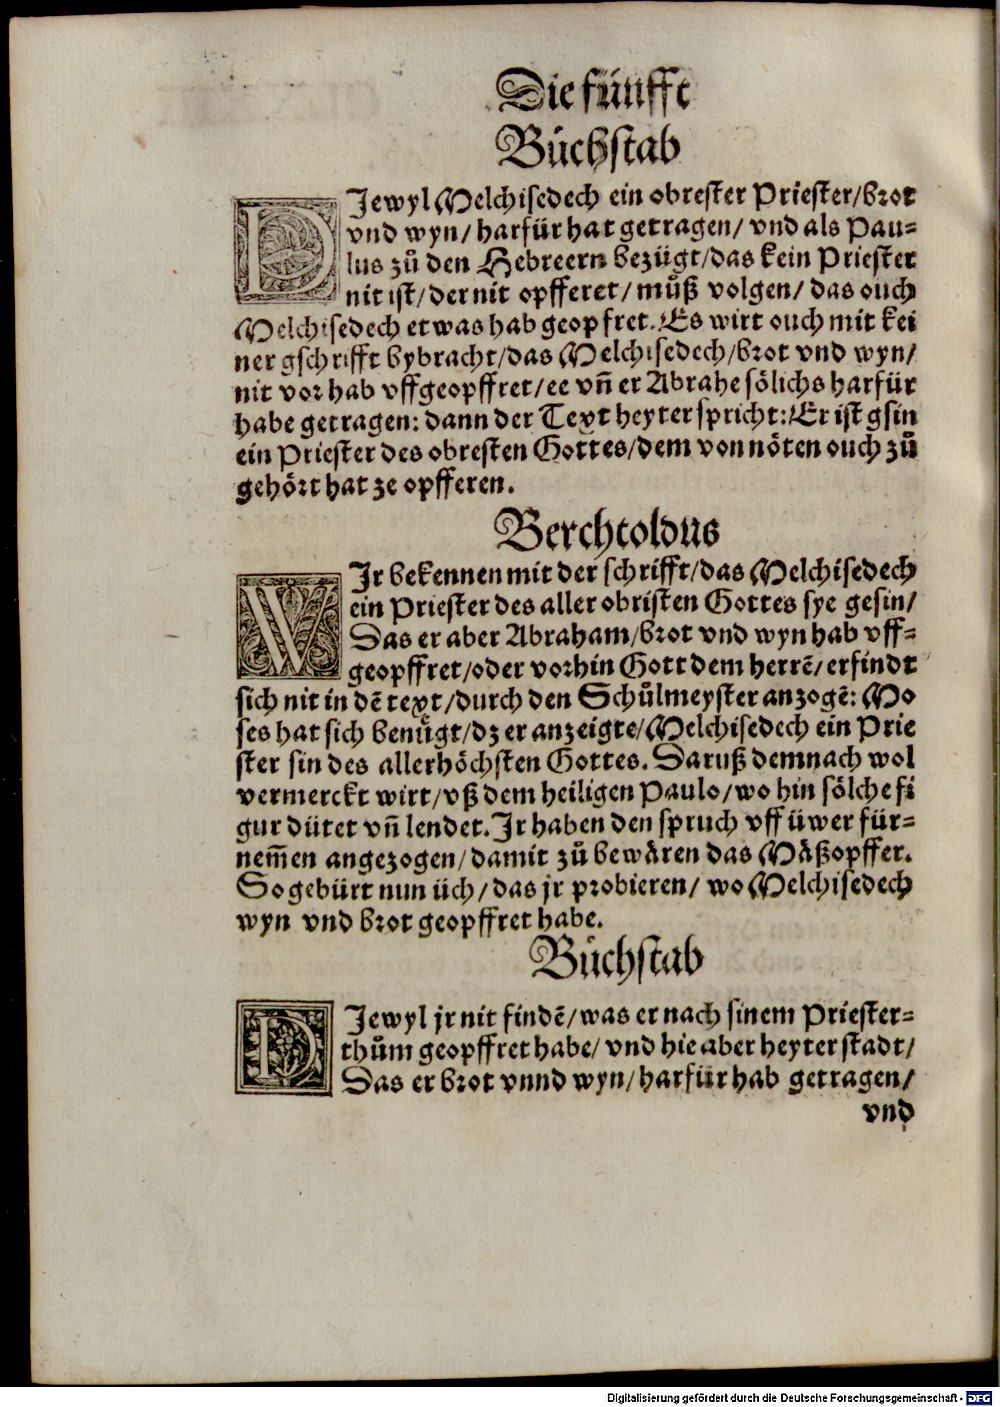 Die fünfft
Bůchstab
DJewyl Melchisedech ein obrester Priester/brot
vnd wyn/ harfür hat getragen/ vnd als Pau=
lus zů den Hebreern bezügt/das kein Priester
nit ist/ der nit opfferet/ můß volgen/ das ouch
Melchisedech etwas hab geopfret. Es wirt ouch mit kei
ner gschrifft bybracht/das Melchisedech/brot vnd wyn/
nit vor hab vffgeopffret/ee vn̄ er Abrahe sölichs harfür
habe getragen: dann der Text heyter spricht: Er ist gsin
ein Priester des obresten Gottes/dem von nöten ouch zů
gehört hat ze opfferen.
Berchtoldus
WJr bekennen mit der schrifft/das Melchisedech
ein Priester des aller obristen Gottes sye gesin/
Das er aber Abraham/brot vnd wyn hab vff=
geopffret/oder vorhin Gott dem herrē/ erfindt
sich nit in dē text/durch den Schůlmeyster anzogē: Mo
ses hat sich benügt/dz er anzeigte/Melchisedech ein Prie
ster sin des allerhöchsten Gottes. Daruß demnach wol
vermerckt wirt/vß dem heiligen Paulo/wo hin sölche fi
gur dütet vn̄ lendet. Jr haben den spruch vff üwer für=
nem̄en angezogen/damit zů bewären das Mäßopffer.
So gebürt nun üch/das jr probieren/ wo Melchisedech
wyn vnd brot geopffret habe.
Bůchstab
DJewyl jr nit findē/was er nach sinem Priester=
thům geopffret habe/ vnd hie aber heyter stadt/
Das er brot vnnd wyn/harfür hab getragen/
vnd
Digitalisierung gefördert durch die Deutsche Forschungsgemeinschaft - DFG